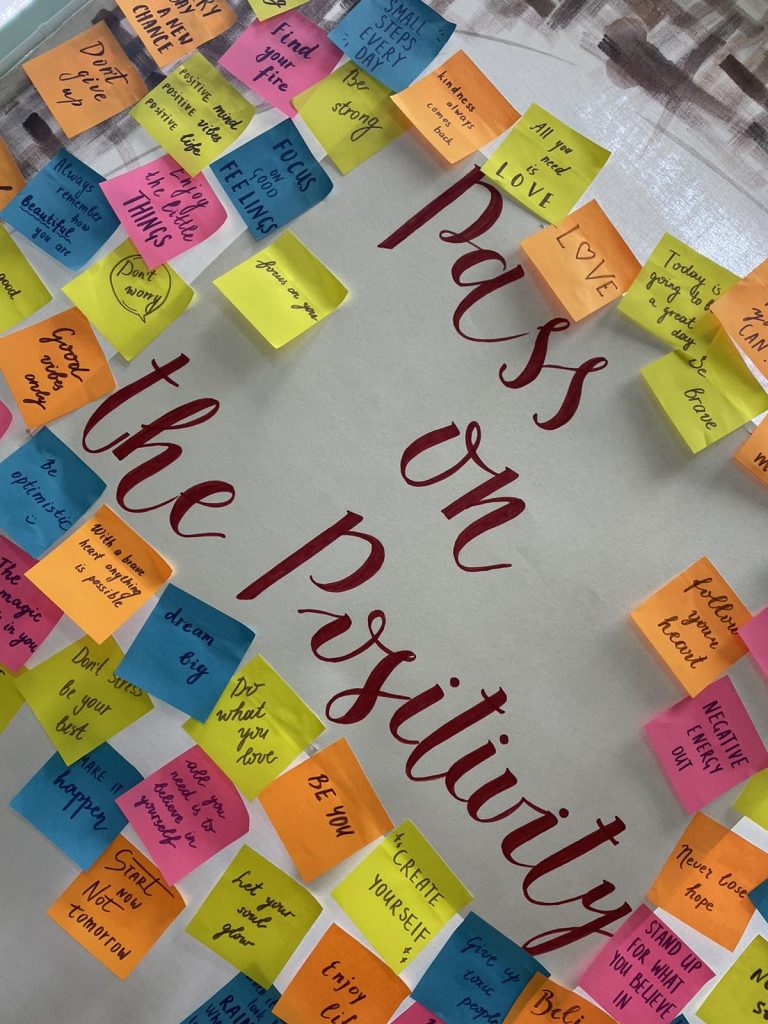 pass
on
the
positivity
A NEW
CHANCE
Find
your
fire
SMALL
STEPS
EVERY
DAY
Don't
give
up
POSITIVE mind
POSITIVE vibes
POSITIVE life
Be
strong
kindness
always
comes
back
All you
need
is
LOVE
Always
remember
how
Beautiful
you are
Enjoy
the little
THINGS
FOCUS
ON
GOOD
FEELINGS
L♡VE
Today is
going to be
a great
day
Don't
worry
focus on you
CAN!
Be
Brave
good
Good
vibes
only
Be
optimistic
With a brave
heart anything
is possible
The
magic
is in you
dream
big
follow
your
heart
Don't stress
be your
best
Do
what
you
love
NEGATIVE
ENERGY
OUT
MAKE IT
happen
all you
need is to
believe in
yourself
BE YOU
Never lose
hope
START
NOW
Not
tomorrow
Let your
soul
glow
CREATE
YOURSELF
Give up
toxic
people
STAND UP
FOR WHAT
YOU BELIEVE
IN
Enjoy